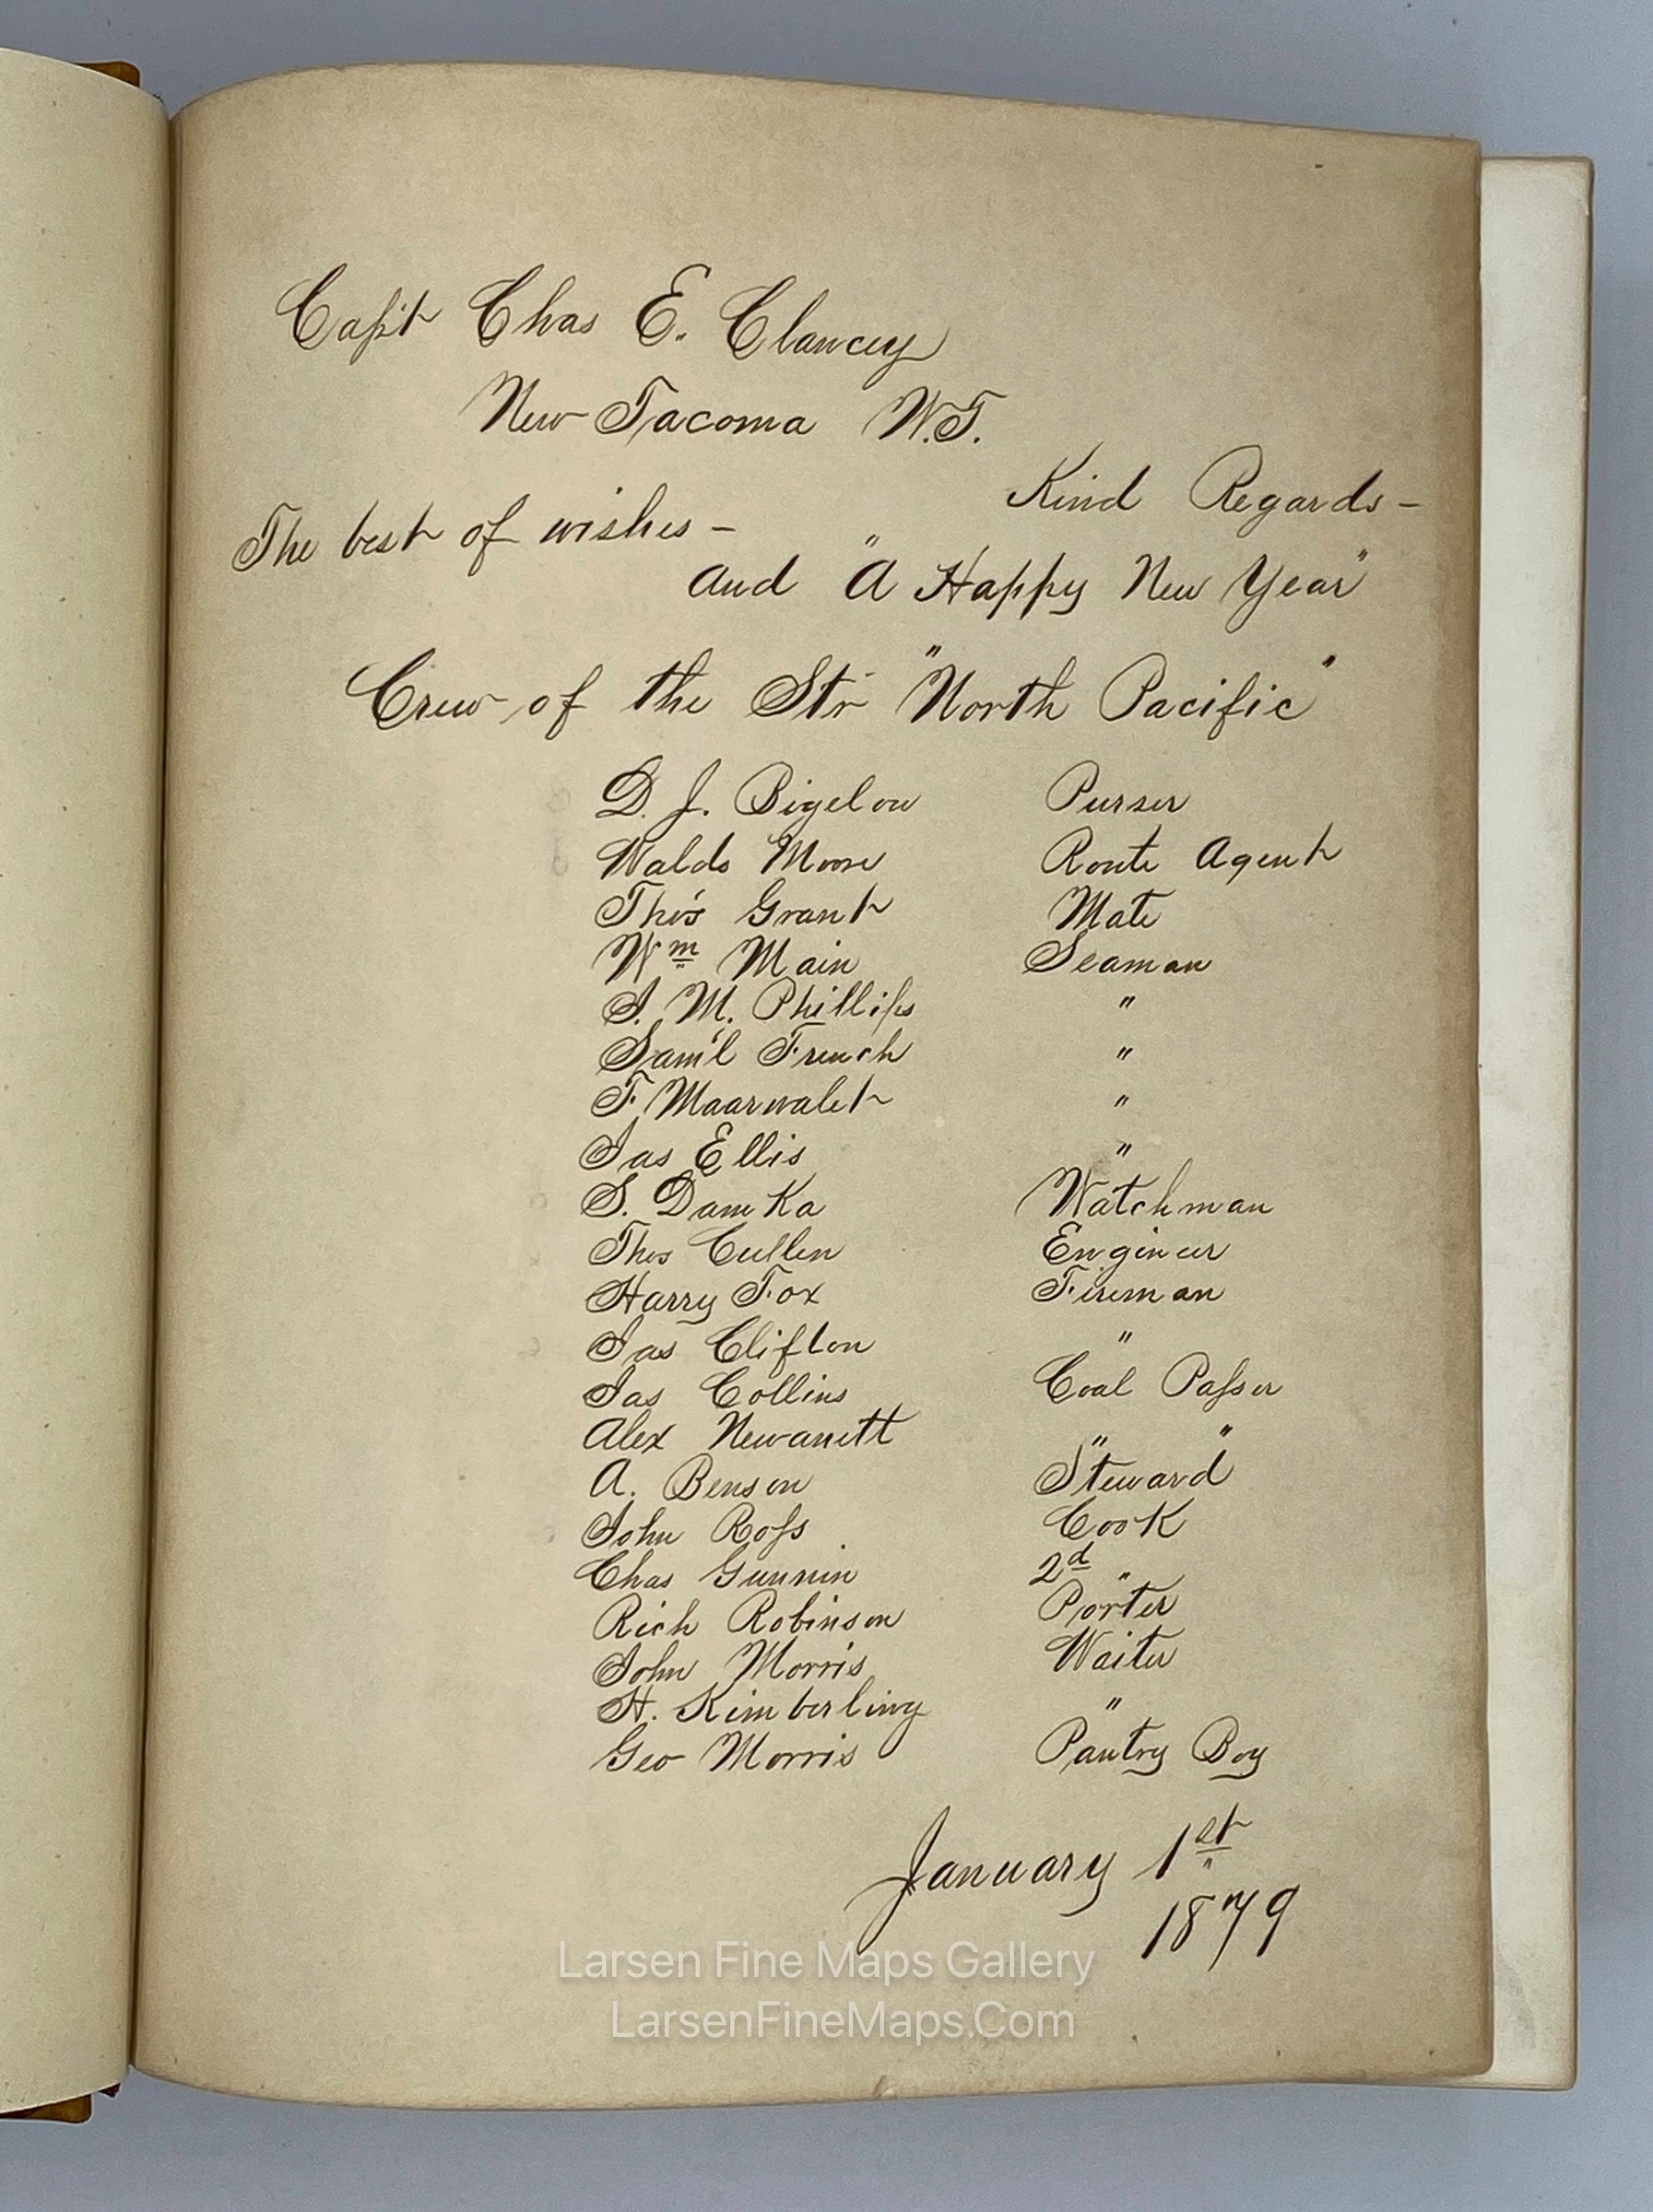 Capt Chas E. Clancey
New Tacoma W.T.
Kind Regards –
The best of wishes –
and "A Happy New Year"
Crew of the Str "North Pacific"
D. J. Bigelow Purser
Waldo Moore Route Agent
Tho's Grant Mate
Wm Main Seaman
J. M. Phillips "
Sam'l French "
F. Maarwalet "
Jas Ellis "
S. Damka Watchman
Thos Cullen Engineer
Harry Fox Fireman
Jas Clifton "
Jas Collins Coal Passer
Alex Newanett " "
A. Benson Steward
John Ross Cook
Chas Gunnin 2d "
Rich Robinson Porter
John Morris Waiter
H. Kimberling "
Geo Morris Pantry Boy
January 1st
1879
Larsen Fine Maps Gallery
LarsenFineMaps.Com